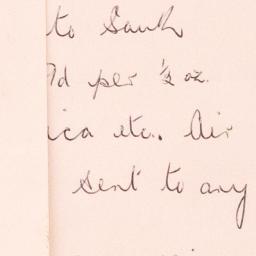 to South
9d per ½ oz.
ica etc. Air
sent to any